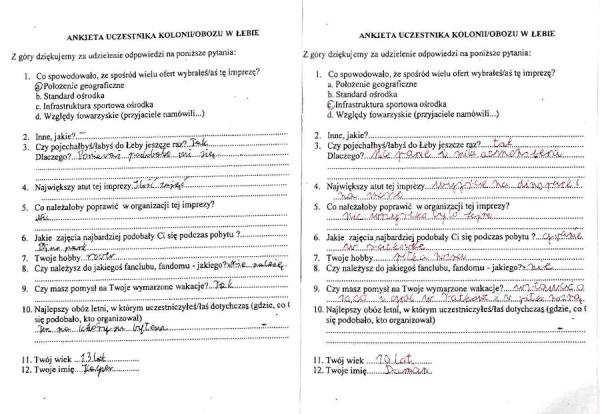 ANKIETA UCZESTNIKA KOLONII/OBOZU W ŁEBIE
Z góry dziękujemy za udzielenie odpowiedzi na poniższe pytania:
1. Co spowodowało, że spośród wielu ofert wybrałeś/aś tę imprezę?
a. Położenie geograficzne
b. Standard ośrodka
c. Infrastruktura sportowa ośrodka
d. Względy towarzyskie (przyjaciele namówili...)
2. Inne, jakie? –
3. Czy pojechałbyś/łabyś do Łeby jeszcze raz? Tak
Dlaczego? Ponieważ podobało mi się
4. Największy atut tej imprezy Ilość zajęć
5. Co należałoby poprawić w organizacji tej imprezy?
Nic
6. Jakie zajęcia najbardziej podobały Ci się podczas pobytu?
Dino park
7. Twoje hobby
8. Czy należysz do jakiegoś fanclubu, fandomu - jakiego? Nie należę
9. Czy masz pomysł na Twoje wymarzone wakacje? Tak
10. Najlepszy obóz letni, w którym uczestniczyłeś/łaś dotychczas (gdzie, co
się podobało, kto organizował)
Ten na którym byłem
11. Twój wiek 13 lat
12. Twoje imię Kacper
ANKIETA UCZESTNIKA KOLONII/OBOZU W ŁEBIE
Z góry dziękujemy za udzielenie odpowiedzi na poniższe pytania:
1. Co spowodowało, że spośród wielu ofert wybrałeś/aś tę imprezę?
a. Położenie geograficzne
b. Standard ośrodka
c. Infrastruktura sportowa ośrodka
d. Względy towarzyskie (przyjaciele namówili...)
2. Inne, jakie?
3. Czy pojechałbyś/łabyś do Łeby jeszcze raz? tak
Dlaczego? i miła atmosfera
4. Największy atut tej imprezy wyjście na dinopark i
na morze
5. Co należałoby poprawić w organizacji tej imprezy?
nic wszystko było fajne
6. Jakie zajęcia najbardziej podobały Ci się podczas pobytu? granie
w siatkówkę
7. Twoje hobby piłka nożna
8. Czy należysz do jakiegoś fanclubu, fandomu - jakiego? nie
9. Czy masz pomysł na Twoje wymarzone wakacje?
i w piłkę nożną
10. Najlepszy obóz letni, w którym uczestniczyłeś/łaś dotychczas (gdzie, co
się podobało, kto organizował)
11. Twój wiek 10 lat
12. Twoje imię Damian